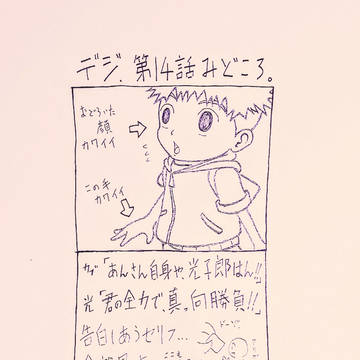 デジ.第14話みどころ。
おどろいた
顔
カワイイ
この手
カワイイ
カブ「あんさん自身や、光子郎はん!!」
光「君の全力で、真っ向勝負!!」
告白しあうセリフ…